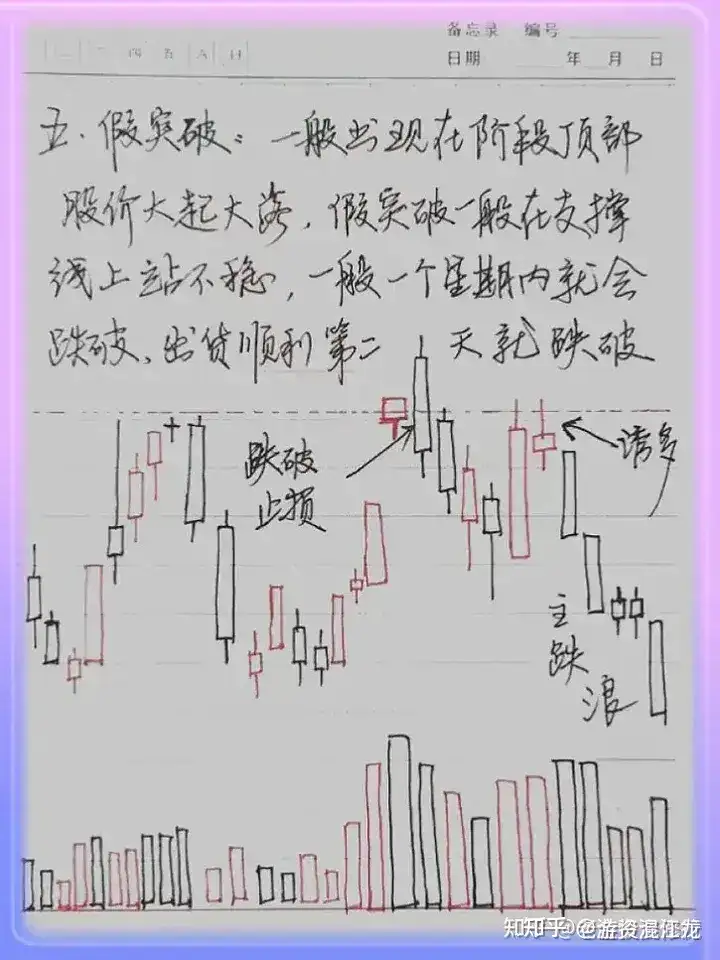 备忘录 编号
一 二 三 四 五 六 日
日期 年 月 日
五、假突破：一般出现在阶段顶部
股价大起大落，假突破一般在支撑
线上站不稳，一般一个星期内就会
跌破、出货顺利第二天就跌破
跌破
止损
诱多
主
跌
浪
知乎 @游资混江龙